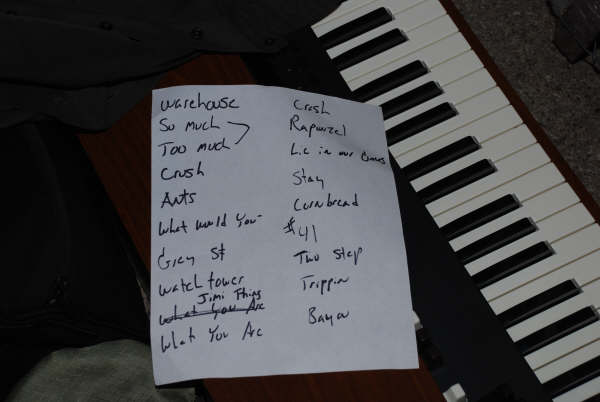 Warehouse
So Much
Too much
Crush
Ants
What Would You-
Grey St
Watchtower
Jimi Thing
What You Are
What You Are
Crash
Rapunzel
Lie in our Graves
Stay
Cornbread
$41
Two Step
Trippin
Bayou